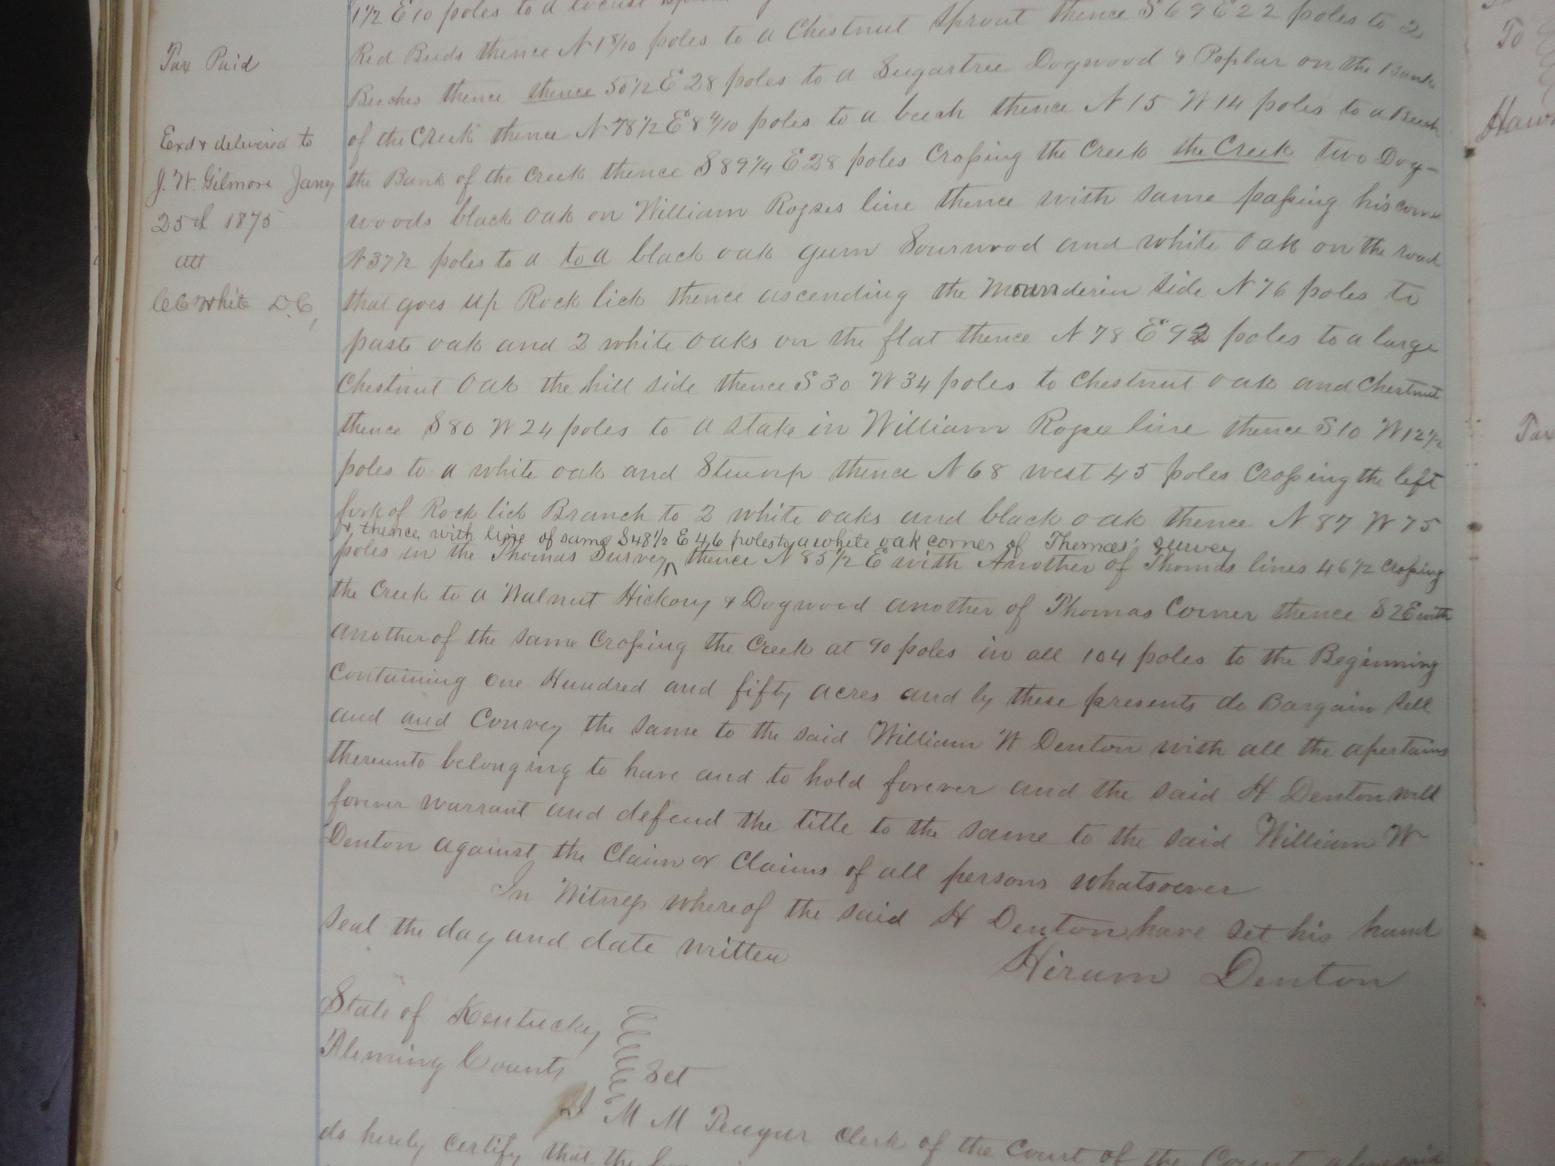 Tax Paid
Exd & delivered to
J. W. Gilmore Jany
25th 1875
att
C C White D.C,
1 1/2 E 10 poles to a locust
Red Buds thence N 1 8/10 poles to a Chestnut Sprout thence S 69 E 22 poles to 2
Beeches thence thence S 0 1/2 E 28 poles to a Sugartree Dogwood & Poplar on the Bank
of the Creek thence N 78 1/2 E 8 4/10 poles to a beech thence N 15 W 14 poles to a Beech
the Bank of the Creek thence S 89 1/4 E 28 poles Crossing the Creek the Creek two Dog-
woods black oak on William Rogses line thence with same passing his corner
N 37 1/2 poles to a to a black oak gum Sourwood and white Oak on the road
that goes up Rock lick thence ascending the side N 76 poles to
paste oak and 2 white oaks on the flat thence N 78 E 92 poles to a large
Chestnut Oak the hill side thence S 30 W 34 poles to Chestnut oak and Chestnut
thence S 80 W 24 poles to a stake in William line thence S 10 W 12 1/2
poles to a white oak and Stump thence N 68 west 45 poles Crossing the left
fork of Rock lick Branch to 2 white oaks and black oak thence N 87 W 75
& thence with line of same S 48 1/2 E 46 poles to a white oak corner of Thomas' survey
poles in the Thomas Survey ^ thence N 85 1/2 E with Another of Thomas lines 46 1/2 Crossing
the Creek to a Walnut Hickory & Dogwood another of Thomas Corner thence S 2 E with
another of the same Crossing the Creek at 90 poles in all 104 poles to the Beginning
Containing one Hundred and fifty acres and by these presents do Bargain Sell
and and Convey the same to the said William W Denton with all the apertains
thereunto belonging to have and to hold forever and the said H Denton will
forever warrant and defend the title to the same to the said William W
Denton against the Claim or Claims of all persons whatsoever
In Witness whereof the said H Denton have set his hand
seal the day and date written
Hiram Denton
State of Kentucky
Fleming County } Sct
I M M Teager clerk of the Court of the County aforesaid
do hereby certify that the
To
Haw
Tax